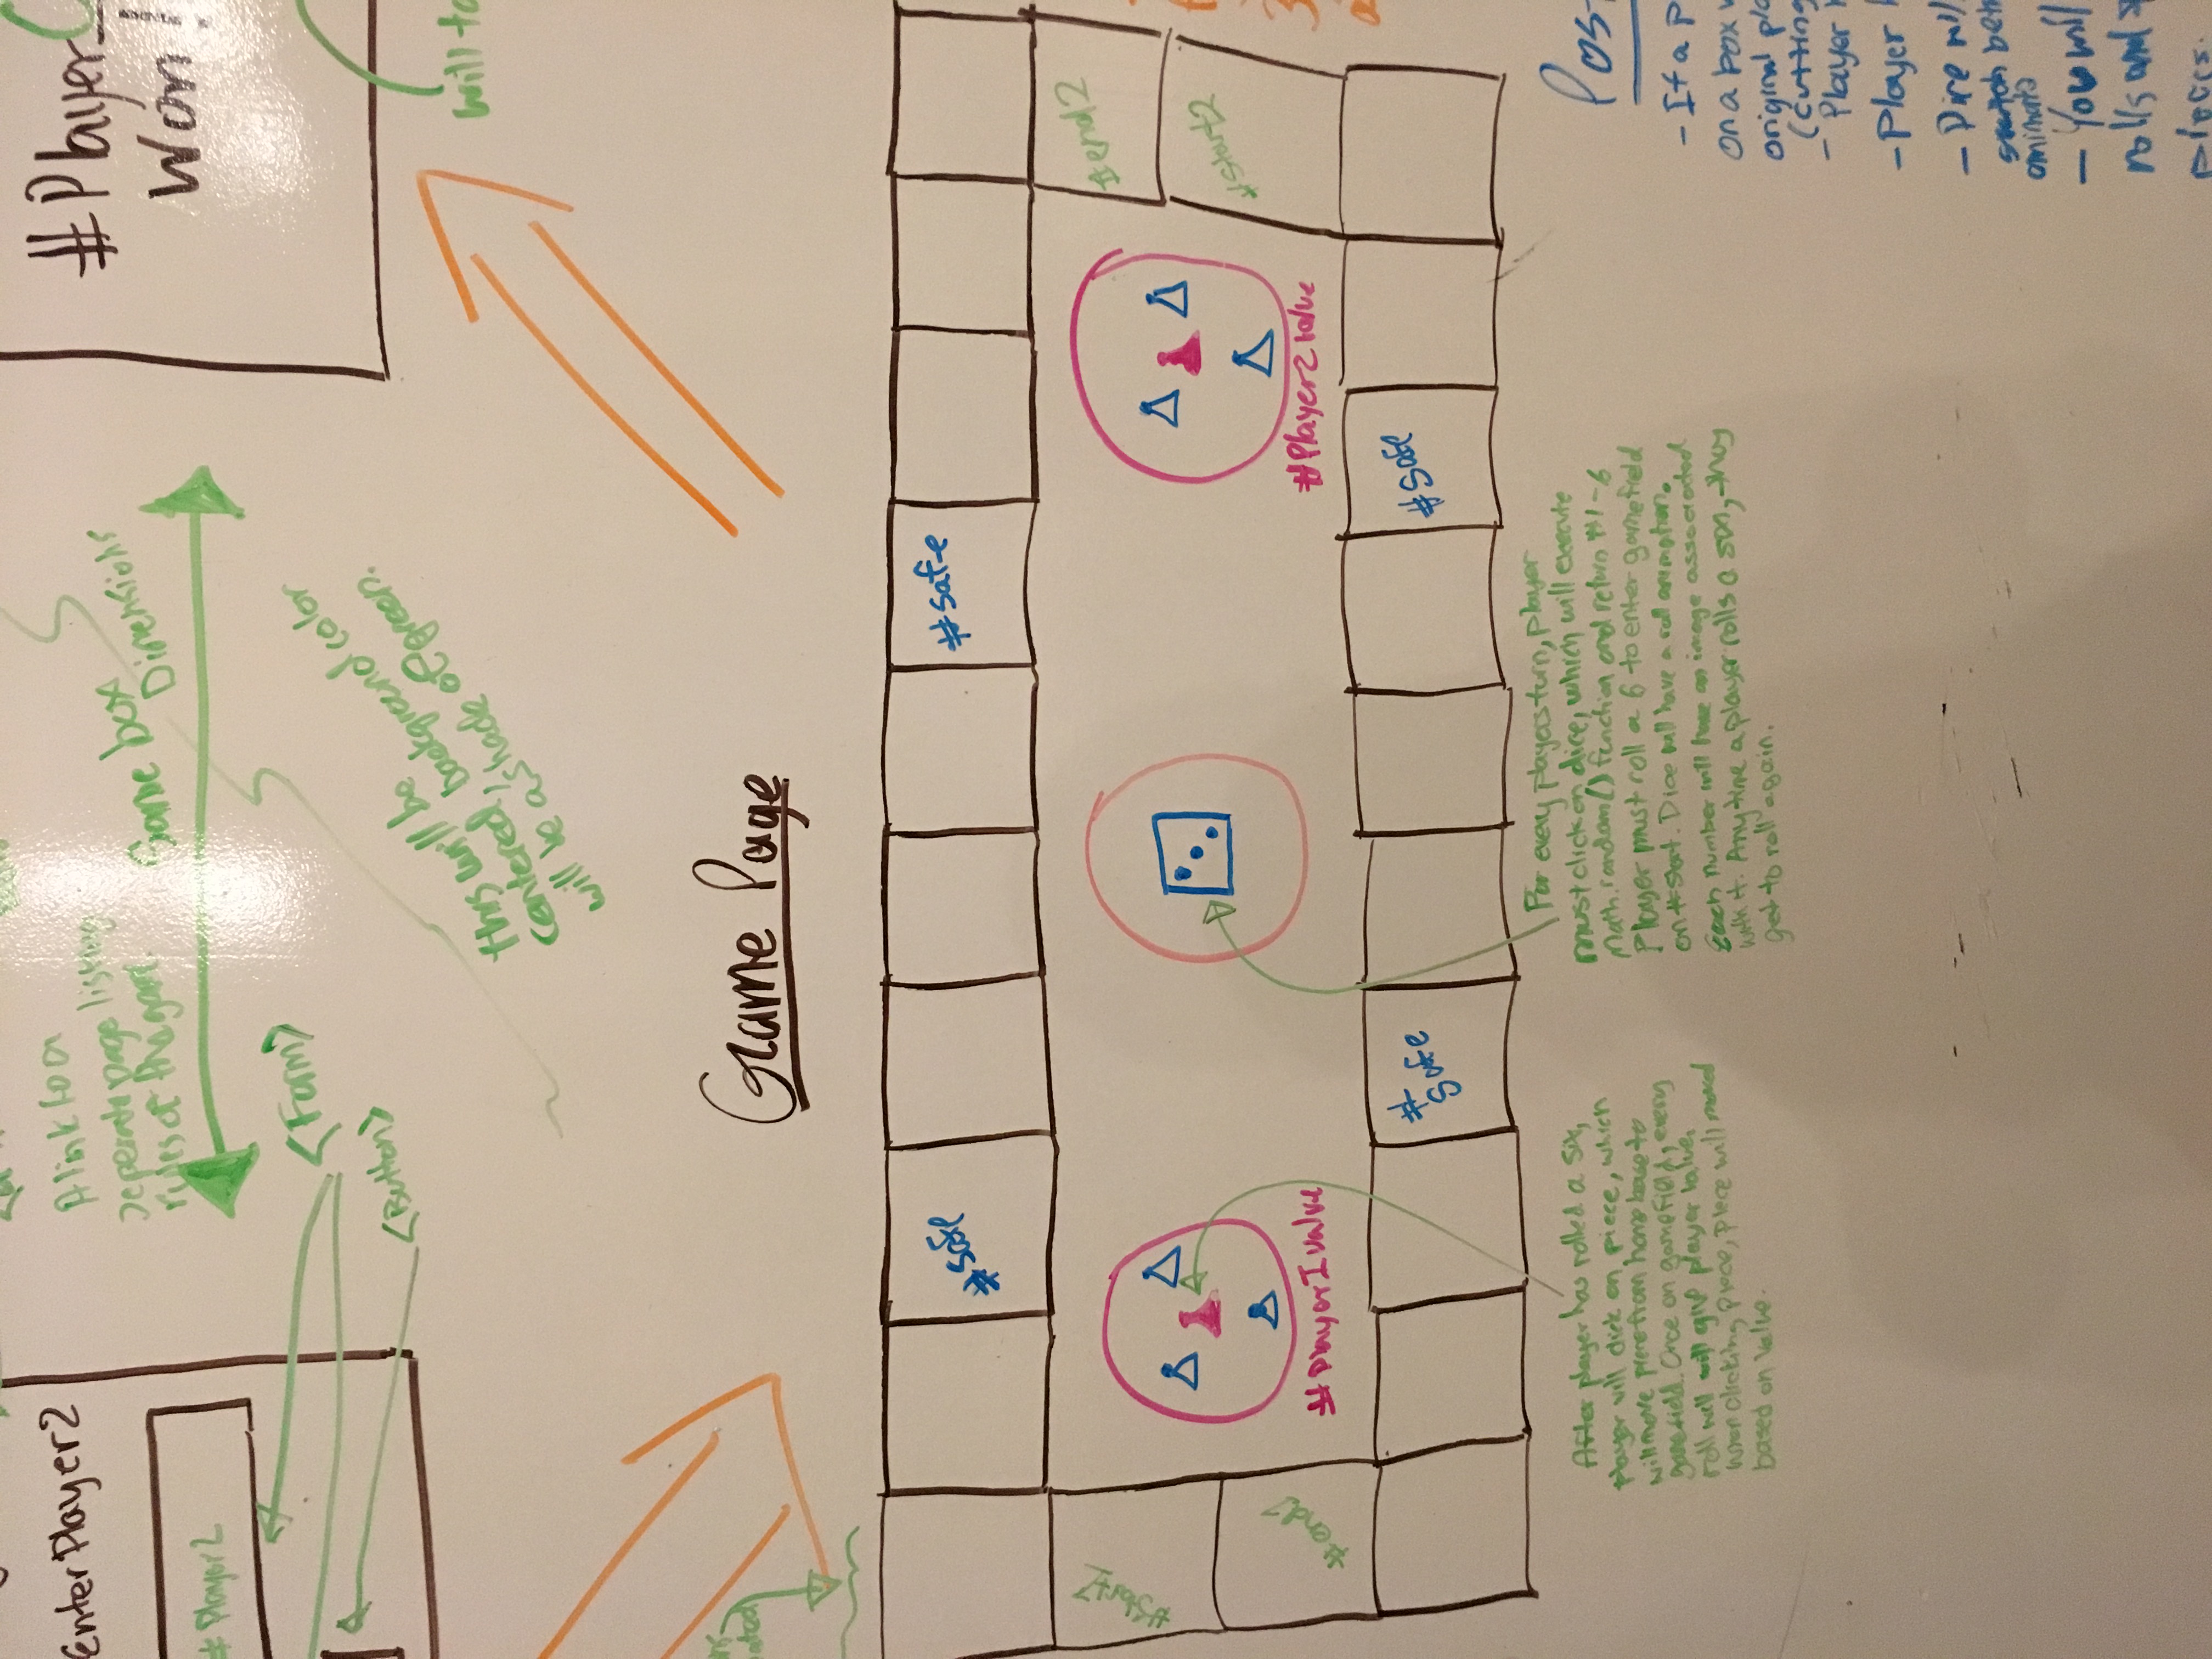 EnterPlayer2
# Player2
A link to a
seperate page listing
rules of the game.
Game box
Dimensions
<Form>
<Button>
this will be
centered, background color
will be a shade of green.
#Player
Won!
will to
Game Page
#safe
#safe
#start1
#end1
#end2
#start2
#Player1value
#Player2value
#
safe
#safe
After player has rolled a six,
player will click on piece, which
will move piece from home base to
gamefield. Once on gamefield, every
roll will will give player value,
when clicking piece, piece will moved
based on value.
For every players turn, player
must click on dice, which will execute
Math.random() function and return #1-6
Player must roll a 6 to enter gamefield
on #start. Dice will have a roll animation.
Each number will have an image associated
with it. Anytime a player rolls a , they
get to roll again.
Pos
- If a p
on a box
original pla
(cutting
- Player
- Player
- Dice will
- You will
rolls and
pieces.